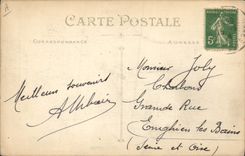 CARTE POSTALE
CORRESPONDANCE
ADRESSE
5c
Monsieur Joly
Charbons
Grande Rue
Enghien les Bains
(Seine et Oise)
Meilleurs souvenirs